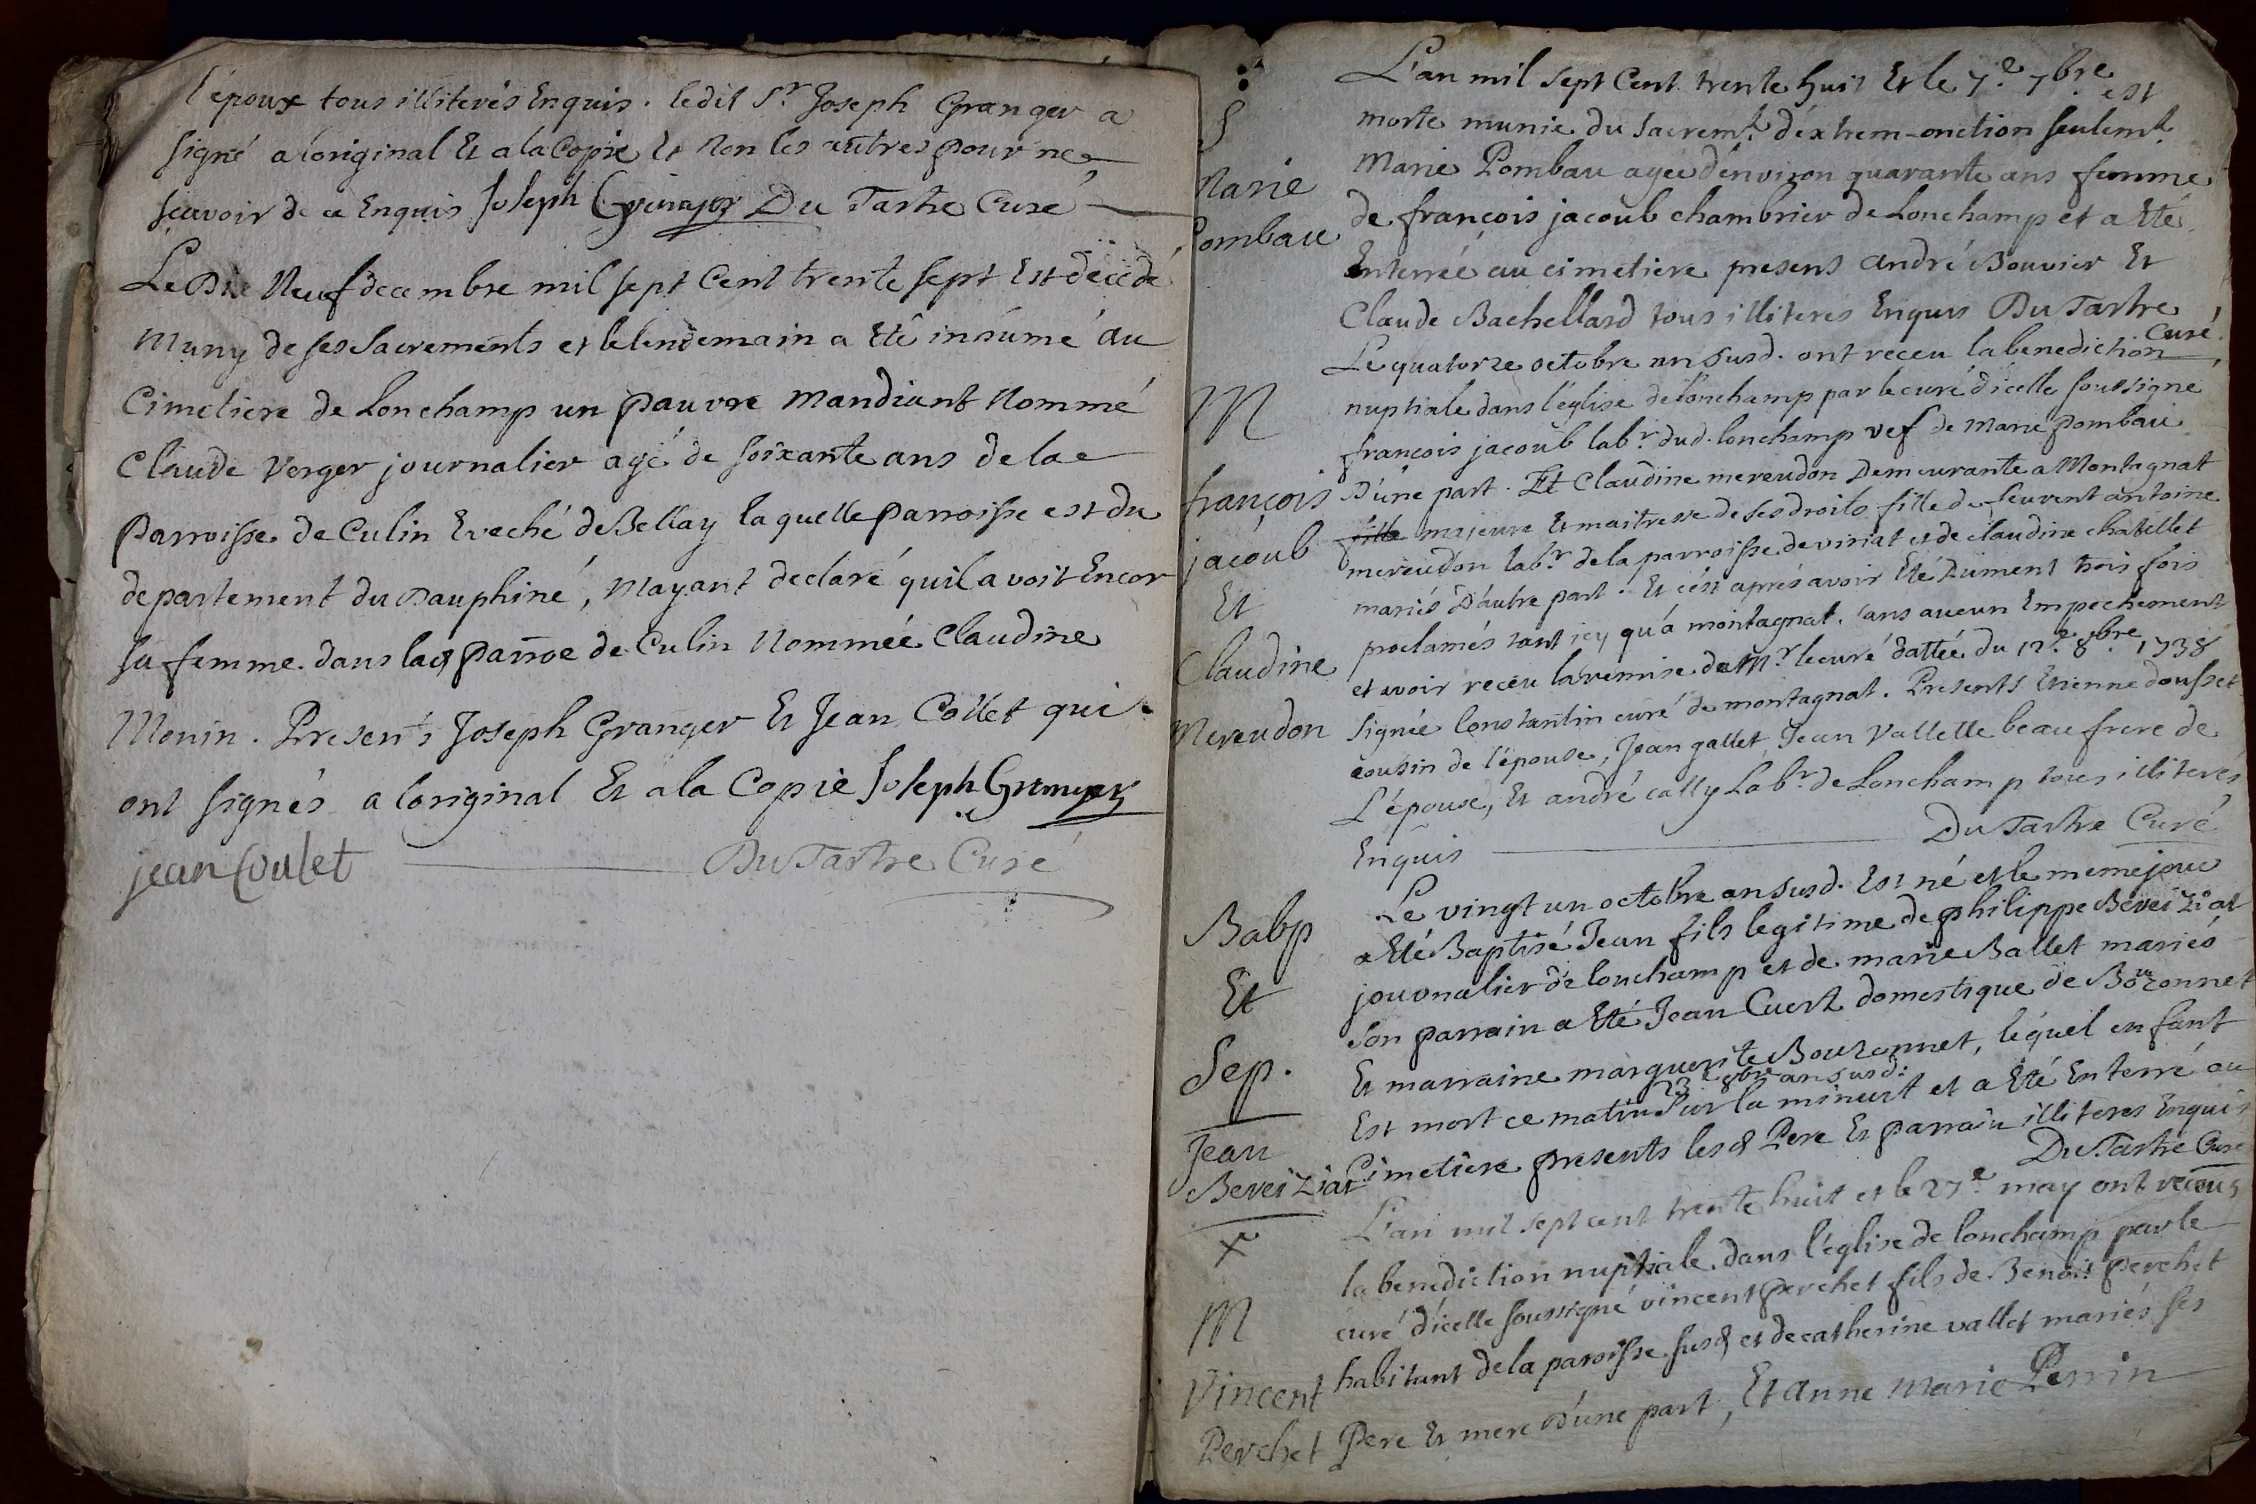 l'époux tous illiterés Enquis. ledit Sr. Joseph Granger a
signé a loriginal Et a la Copie Et Non les autres pour ne
sçavoir de ce Enquis Joseph Granger Du Tartre Curé
Le Dix Neuf decembre mil sept Cent trente sept Est decedé
Muny de ses Sacrements et le lendemain a Eté inhumé au
Cimetiere de Lonchamp un pauvre Mandiant Nommé
Claude Verger journalier agé de soixante ans de la
Parroisse de Culin Eveché de Bellay laquelle Parroisse est du
departement du Dauphiné, Mayant declaré quil avoit Encor
sa femme dans lad parroe de Culin Nommée Claudine
Monin. Presents Joseph Granger Et Jean Collet qui
ont signés a loriginal Et a la Copie Joseph Granger
jean Coulet Du Tartre Curé
L'an mil sept Cent trente huit Et le 7e. 7bre. est
S
morte munie du Sacremt. d'extrem-onction seulemt.
Marie
Marie Pombau agée d'environ quarante ans femme
Pombau
de françois jacoub chambrier de Lonchamp et a Eté
Enterrée au cimetiere presens André Bouvier Et
Claude Bachellard tous illiteres Enquis Du Tartre
Curé.
Le quatorze octobre an susd. ont receu la benediction
M
nuptiale dans l'église de lonchamp par le curé d'icelle soussigné
françois jacoub labr. dud. lonchamp vef de Marie Pombau
françois
D'une part. Et Claudine mereudon Demeurante a Montagnat
jacoub
fille majeure Et maitresse de ses droits fille de feu vent antoine
Et
mereudon labr. de la parroisse de viriat et de claudine chatellet
mariés D'autre part. Et c'est aprés avoir Eté Dument trois fois
proclamés tant icy qu'á montagnat, sans aucun Empechement
Claudine
et avoir receu la remise de Mr. le curé dattée du 12e. 8bre. 1738
Mereudon
signée Constantin curé de montagnat. Presents Etienne dousset
cousin de l'épouse, Jean gallet, Jean Vallette beau frere de
L'épouse, Et andré cally Labr. de Lonchamp tous illiterés
Enquis Du Tartre Curé
Le vingt un octobre an susd. Est né et le meme jour
Babp
a Eté Baptisé Jean fils legitime de philippe Beveiziat
Et
journalier de lonchamp et de marie Ballet mariés
Son parrain a Eté Jean Cuert domestique de Bouzonnet
Sep.
Et marraine marguerite Bouzonnet, lequel enfant
23 8bre an susd:
Est mort ce matin Sur la minuit et a Eté Enterré au
Jean
Beveiziat
Cimetiere presents lesd Pere Et parrain illiteres Enquis
Du Tartre Curé
L'an mil sept cent trente huit et le 27e. may ont receus
la benediction nuptiale dans l'église de lonchamp par le
M
curé d'icelle soussigné vincent Perchet fils de Benoit Perchet
Vincent
habitant de la paroisse susd et de catherine vallet mariés ses
Perchet
Pere Et mere D'une part, Et Anne Marie Perrin